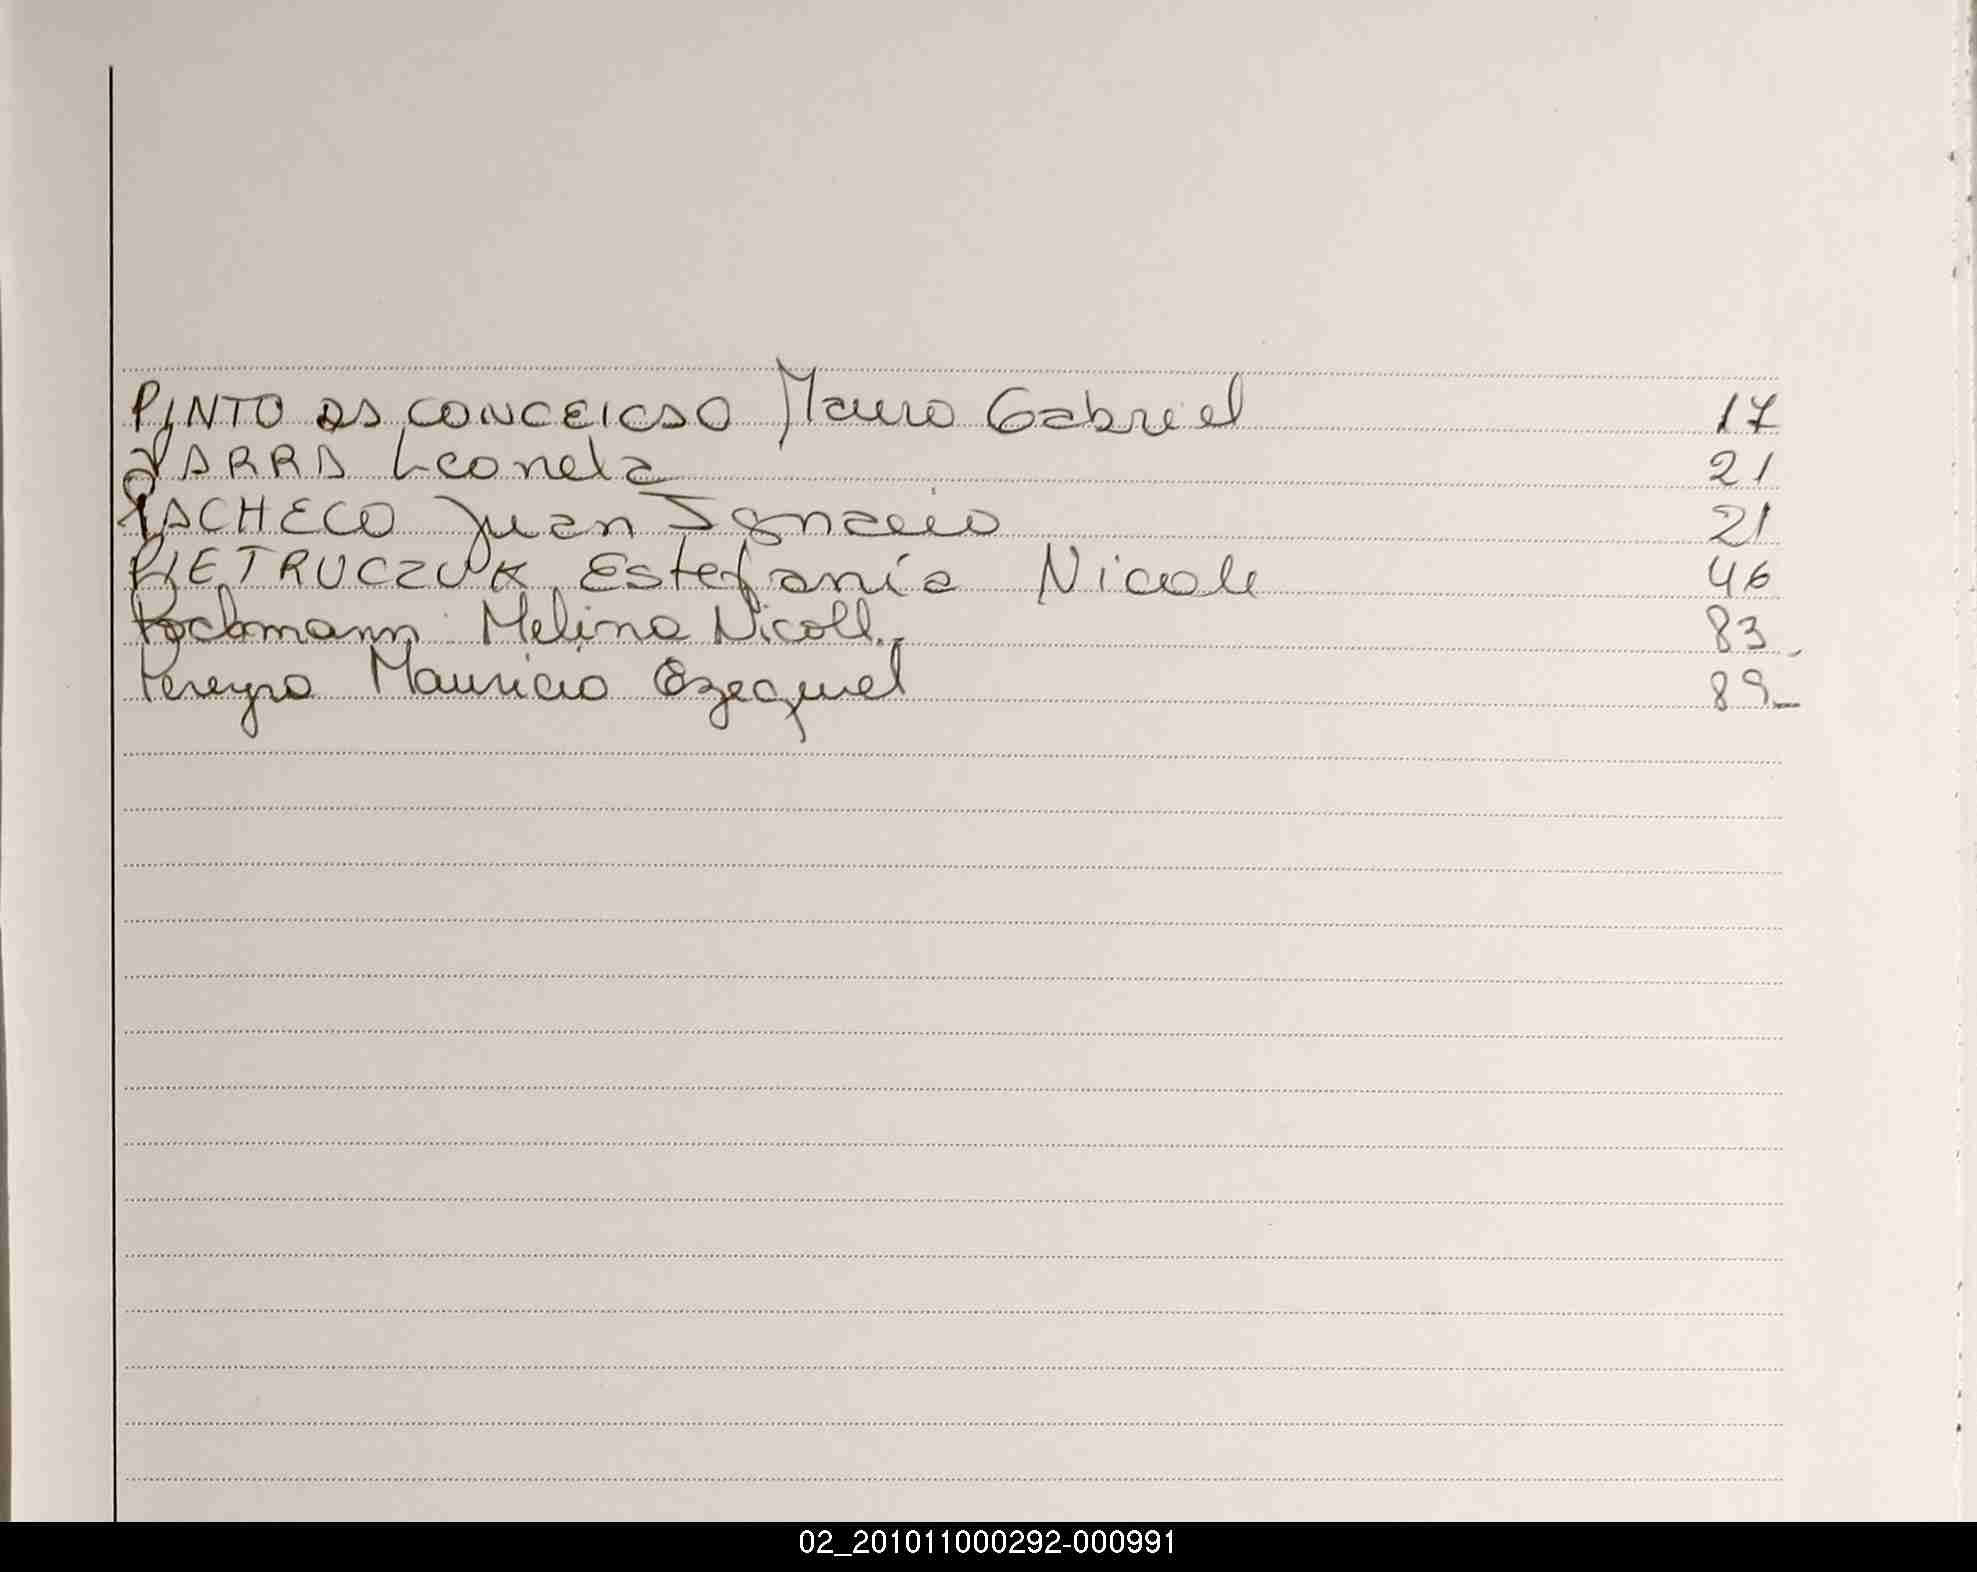 PINTO DA CONCEICAO Mauro Gabriel 17
PARRA Leonela 21
PACHECO Juan Ignacio 21
PIETRUCZUK Estefanía Nicole 46
Melina Nicoll. 83
Pereyra Mauricio Ezequiel 89
02_201011000292-000991